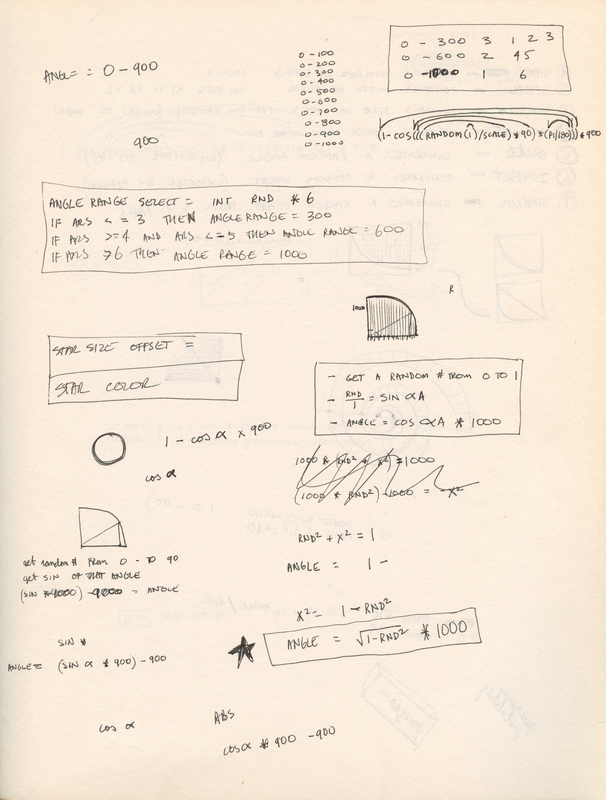 ANGL = = 0 - 900
900
0 - 100
0 - 200
0 - 300
0 - 400
0 - 500
0 - 600
0 - 700
0 - 800
0 - 900
0 - 1000
0 - 300 3 1 2 3
0 - 600 2 45
0 - 1000 1 6
(1 - COS(((RANDOM(1)/SCALE)*90)*(PI/180)))*900
ANGLE RANGE SELECT = INT RND * 6
IF ARS <= 3 THEN ANGLERANGE = 300
IF ARS >=4 AND ARS <=5 THEN ANGLE RANGE = 600
IF ARS 76 THEN ANGLE RANGE = 1000
R
1000
STAR SIZE OFFSET =
STAR COLOR
- GET A RANDOM # FROM 0 TO 1
- RND/1 = SIN αA
- ANGLE = COS αA * 1000
1 - cos α x 900
cos α
1000 * RND² + X² = 1000
(1000 * RND²) - 1000 = - X²
RND² + X² = 1
ANGLE = 1 -
X² = 1 - RND²
ANGLE = √1-RND² * 1000
get random # FROM 0 - TO 90
get SIN OF THAT ANGLE
= ANGLE
SIN *
ANGLE = (SIN α * 900) - 900
cos α
ABS
cos α * 900 - 900